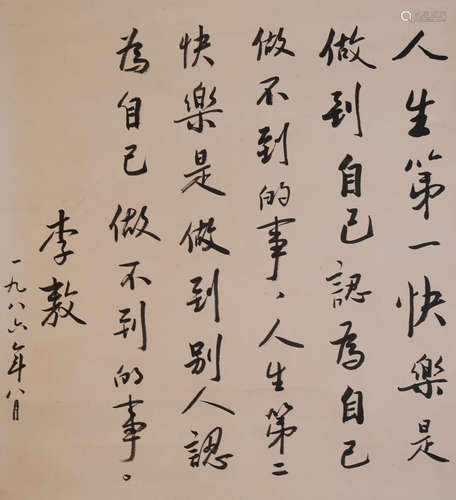 人生第一快樂是
做到自己認為自己
做不到的事、人生第二
快樂是做到别人認
為自己做不到的事。
李敖
一九八六年八月